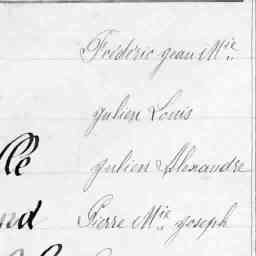 Fréderic jean Mie
julien Louis
julien Alexandre
Pierre Mie joseph